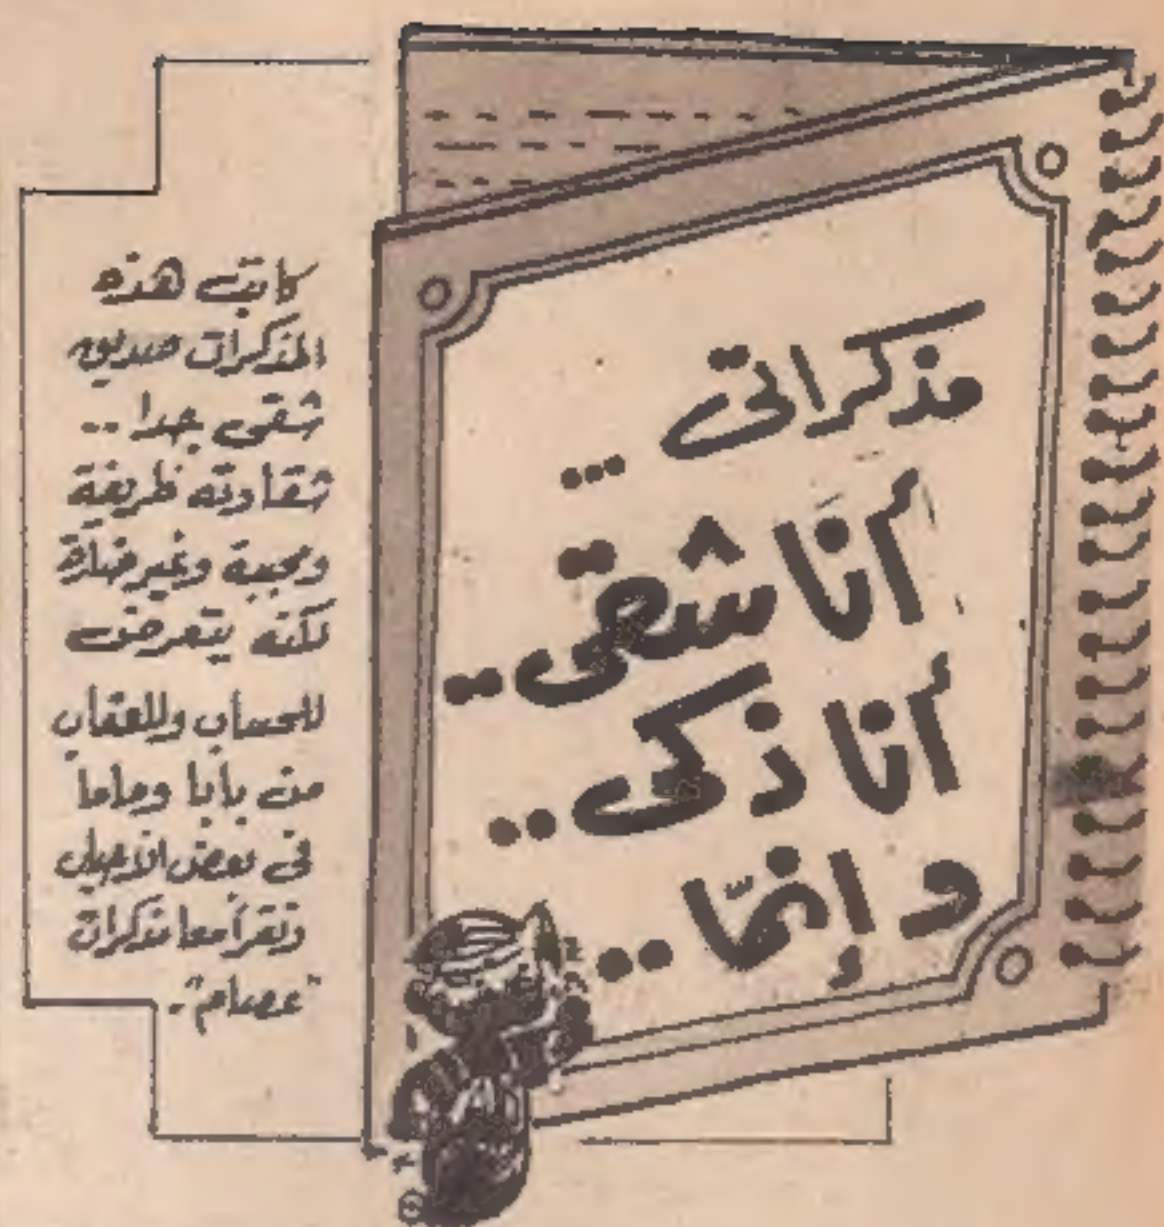 مذكراتى ...
أنا شقى ..
أنا ذكى ..
و إنمّا ..
كاتب هذه
المذكرات صديق
شقى جدا ..
شقاوته ظريفة
ومحببة وغير ضارة
لكنه يتعرض
للحساب وللعقاب
من بابا وماما
فى بعض الأحيان
ونقرأ معا مذكرات
"عصام".